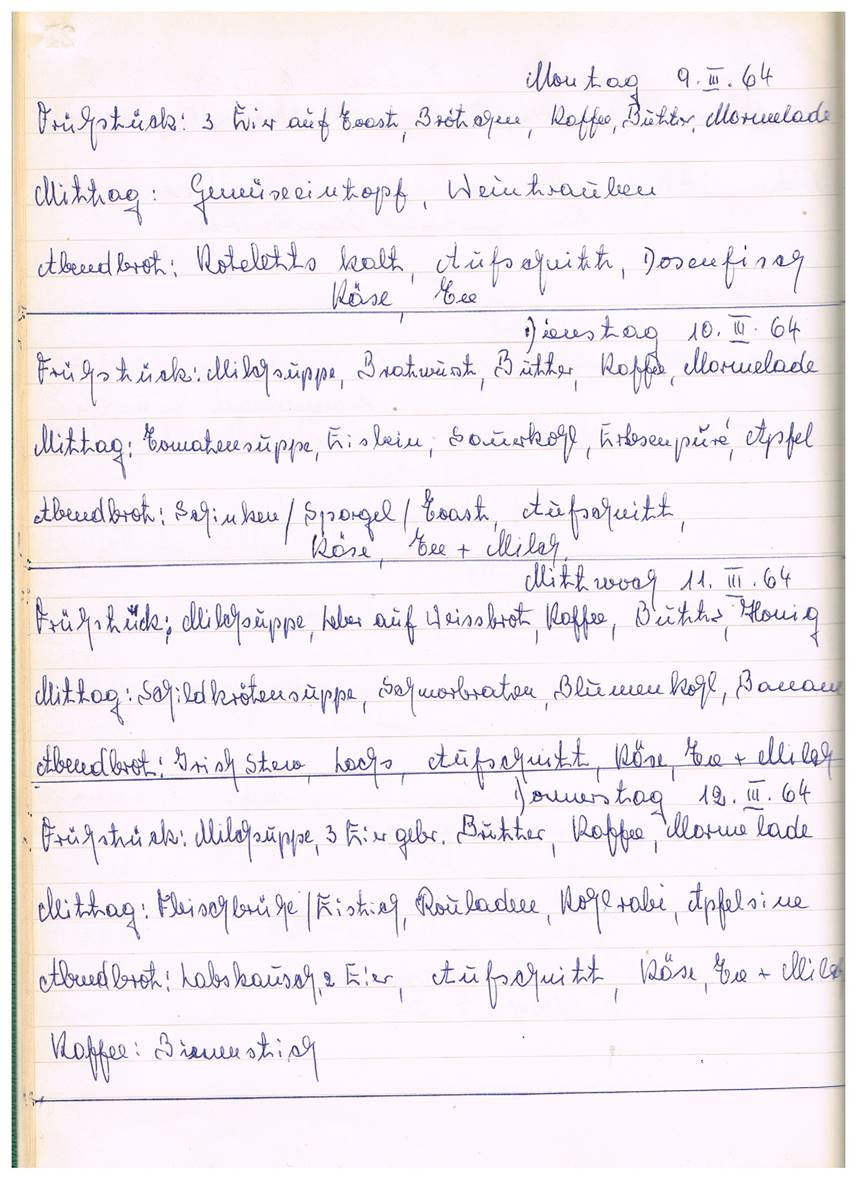 Montag 9. III. 64
Frühstück: 3 Eier auf Toast, Brötchen, Kaffee, Butter, Marmelade
Mittag: Gemüseeintopf, Weintrauben
Abendbrot: Koteletts kalt, Aufschnitt, Dosenfisch
Käse, Tee
Dienstag 10. III. 64
Frühstück: Milchsuppe, Bratwurst, Butter, Kaffee, Marmelade
Mittag: Tomatensuppe, Eisbein, Sauerkohl, Erbsenpüré, Apfel
Abendbrot: Schinken / Spargel / Toast, Aufschnitt,
Käse, Tee + Milch
Mittwoch 11. III. 64
Frühstück: Milchsuppe, Leber auf Weissbrot, Kaffee, Butter, Honig
Mittag: Schildkrötensuppe, Schmorbraten, Blumenkohl, Banane
Abendbrot: Irish Stew, Lachs, Aufschnitt, Käse, Tee + Milch
Donnerstag 12. III. 64
Frühstück: Milchsuppe, 3 Eier gebr. Butter, Kaffee, Marmelade
Mittag: Fleischbrühe / Eistich, Rouladen, Kohlrabi, Apfelsine
Abendbrot: Labskausch, 2 Eier, Aufschnitt, Käse, Tee + Milch
Kaffee: Bienenstich